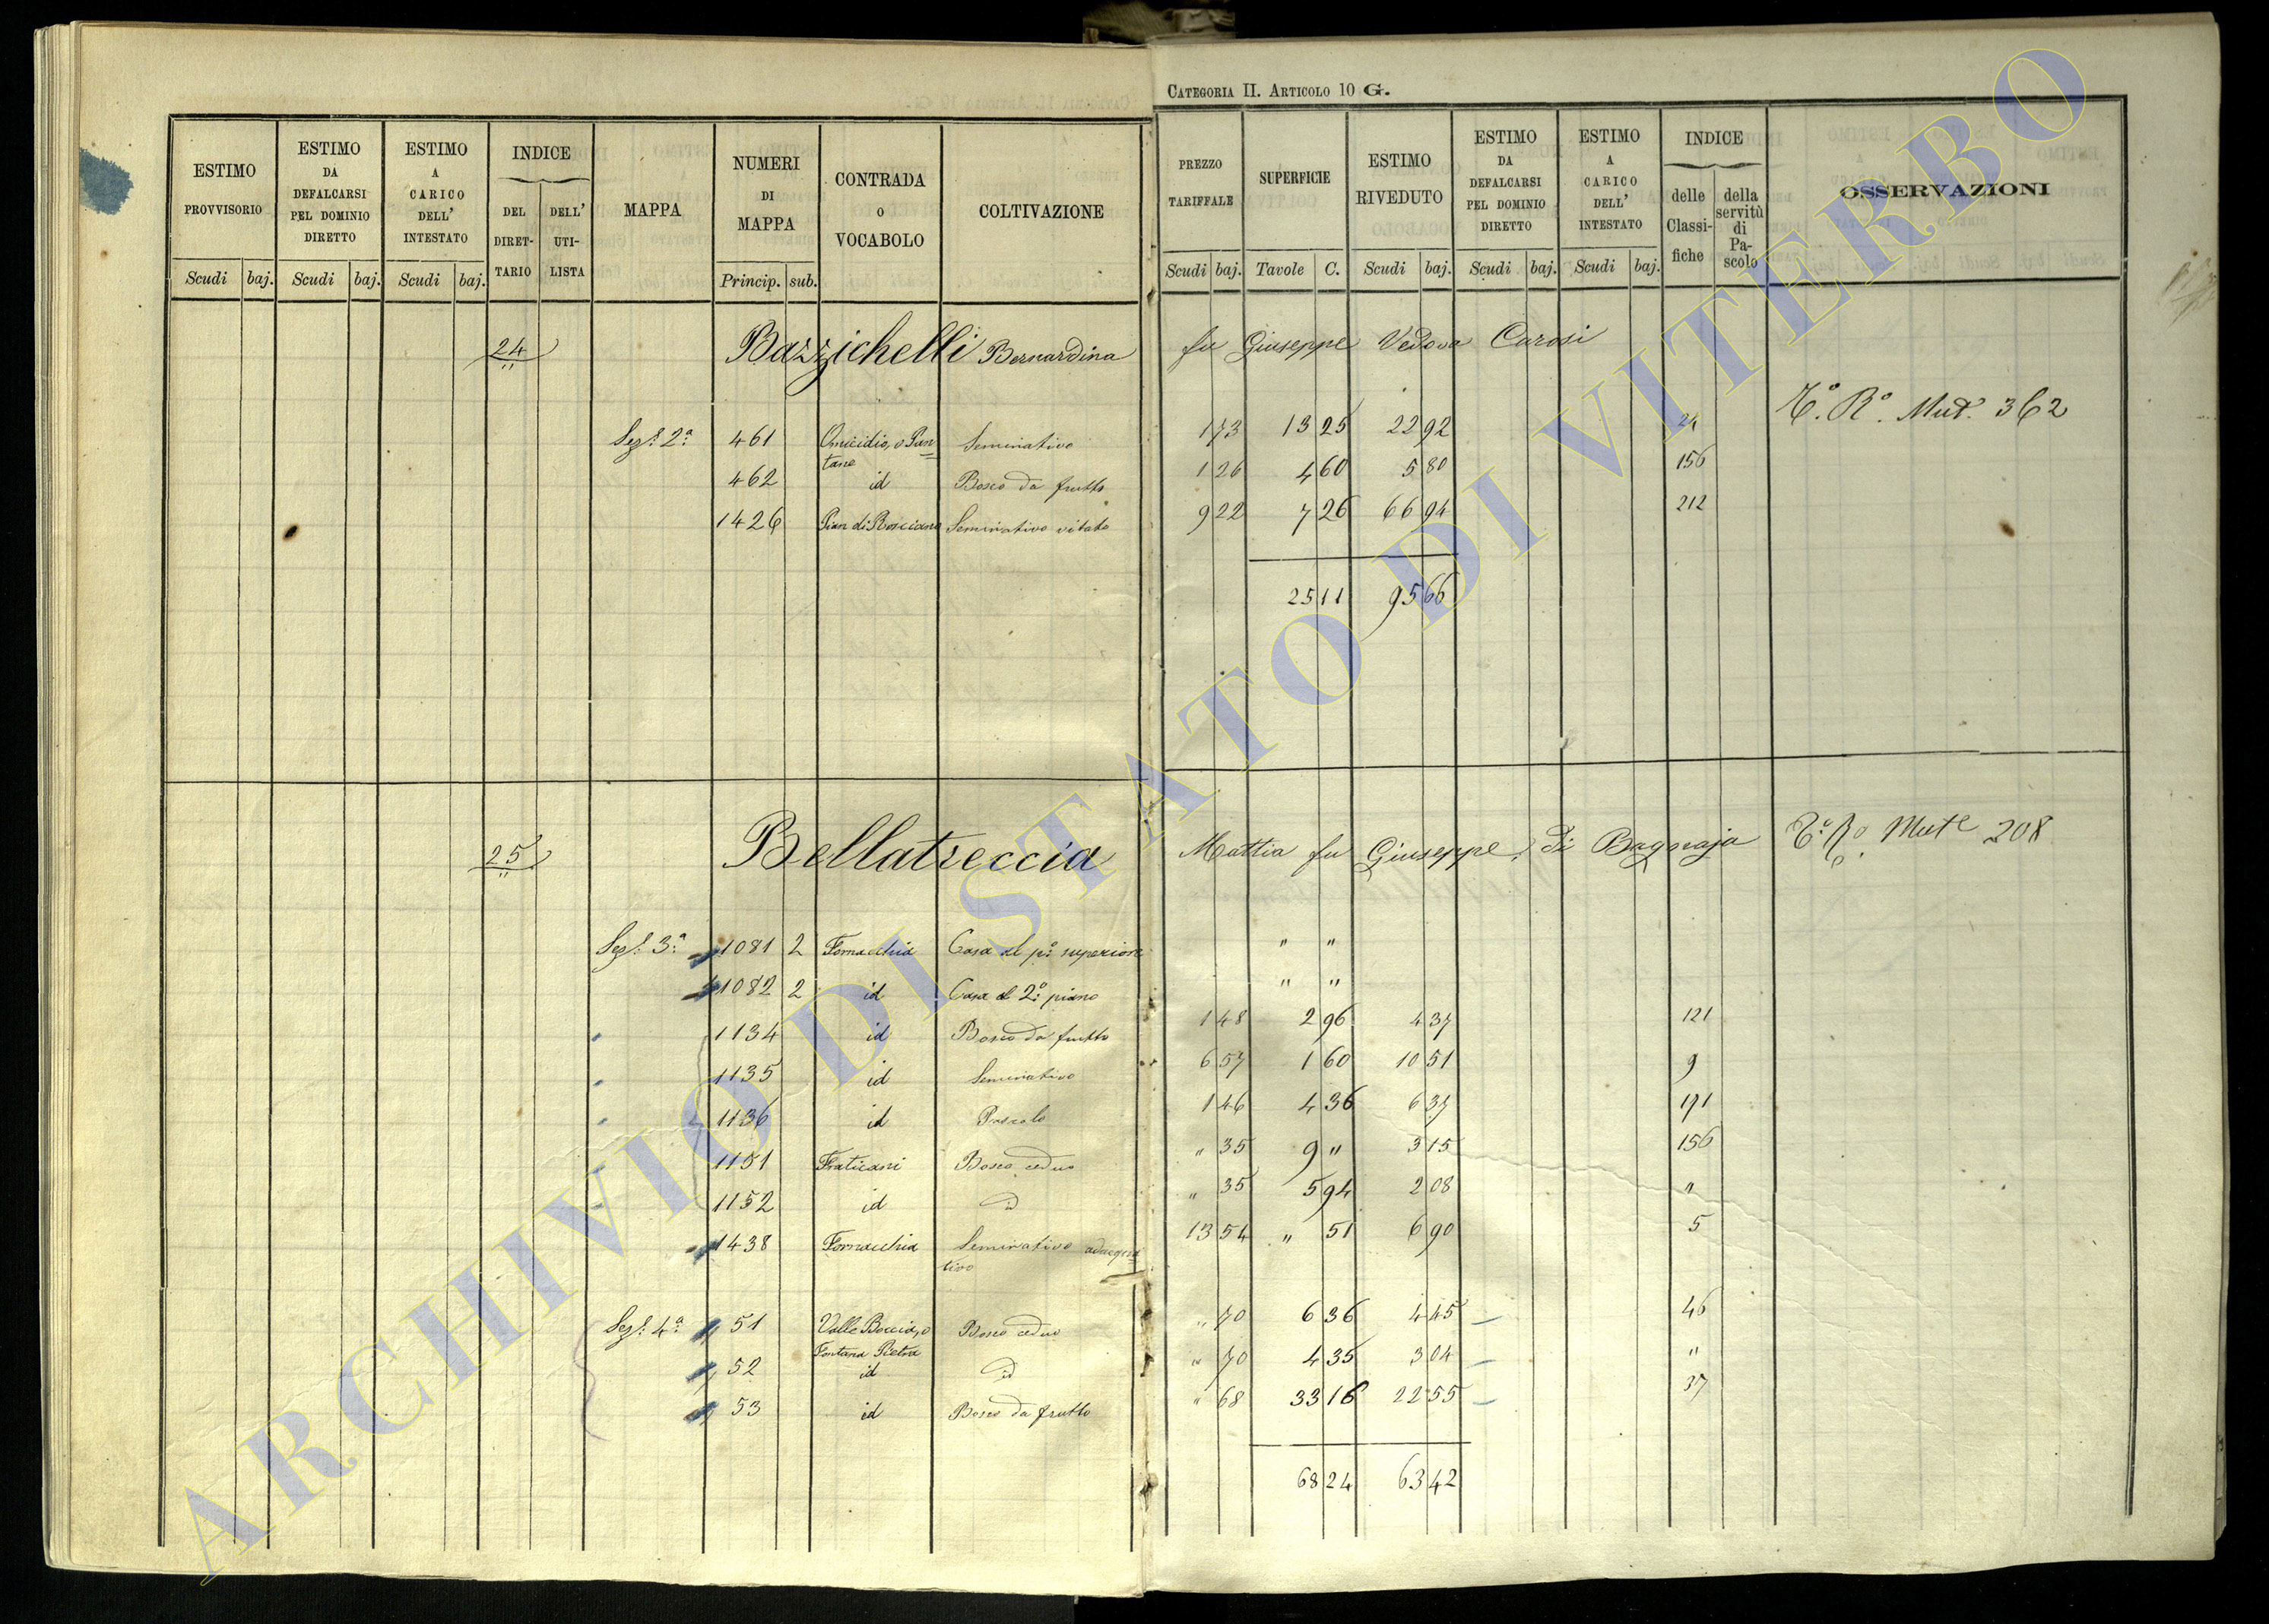 CATEGORIA II. ARTICOLO 10 G.
ESTIMO PROVVISORIO | ESTIMO DA DEFALCARSI PEL DOMINIO DIRETTO | ESTIMO A CARICO DELL' INTESTATO | INDICE DEL DIRET-TARIO | DELL' UTI-LISTA | MAPPA | NUMERI DI MAPPA | CONTRADA O VOCABOLO | COLTIVAZIONE | PREZZO TARIFFALE | SUPERFICIE | ESTIMO RIVEDUTO | ESTIMO DA DEFALCARSI PEL DOMINIO DIRETTO | ESTIMO A CARICO DELL' INTESTATO | INDICE delle Classi-fiche | della servitù di Pa-scolo | OSSERVAZIONI
Scudi baj. | Scudi baj. | Scudi baj. | Princip. sub. | Scudi baj. | Tavole C. | Scudi baj. | Scudi baj. | Scudi baj.
24 Bazzichelli Bernardina fu Giuseppe Vedova Carosi
Rº. Mutº. 362
Sezº. 2ª 461 Omicidio, o Pan= Seminativo 1 73 13 25 22 92 21
tane
462 id Bosco da frutto 1 26 4 60 5 80 156
1426 Pian di Rosciano Seminativo vitato 9 22 7 26 66 94 212
25 11 95 66
25 Bellatreccia Mattia fu Giuseppe, di Bagnaja Mute 208
Sezº. 3ª 1081 2 Fornacchia Casa al pº superiore " "
1082 2 id Casa al 2º piano " "
1134 id Bosco da frutto 1 48 2 96 4 37 121
1135 id Seminativo 6 57 1 60 10 51 9
1136 id Pascolo 1 46 4 36 6 37 171
1151 Fraticani Bosco ceduo " 35 9 " 3 15 156
1152 id id " 35 5 94 2 08 "
1438 Fornacchia Seminativo adacqua= 13 54 " 51 6 90 5
tivo
Sezº. 4ª 51 Valle Boccia, o Bosco ceduo " 70 6 36 4 45 46
Fontana Pietra
52 id id " 70 4 35 3 04 "
53 id Bosco da frutto " 68 33 16 22 55 37
68 24 63 42
ARCHIVIO DI STATO DI VITERBO